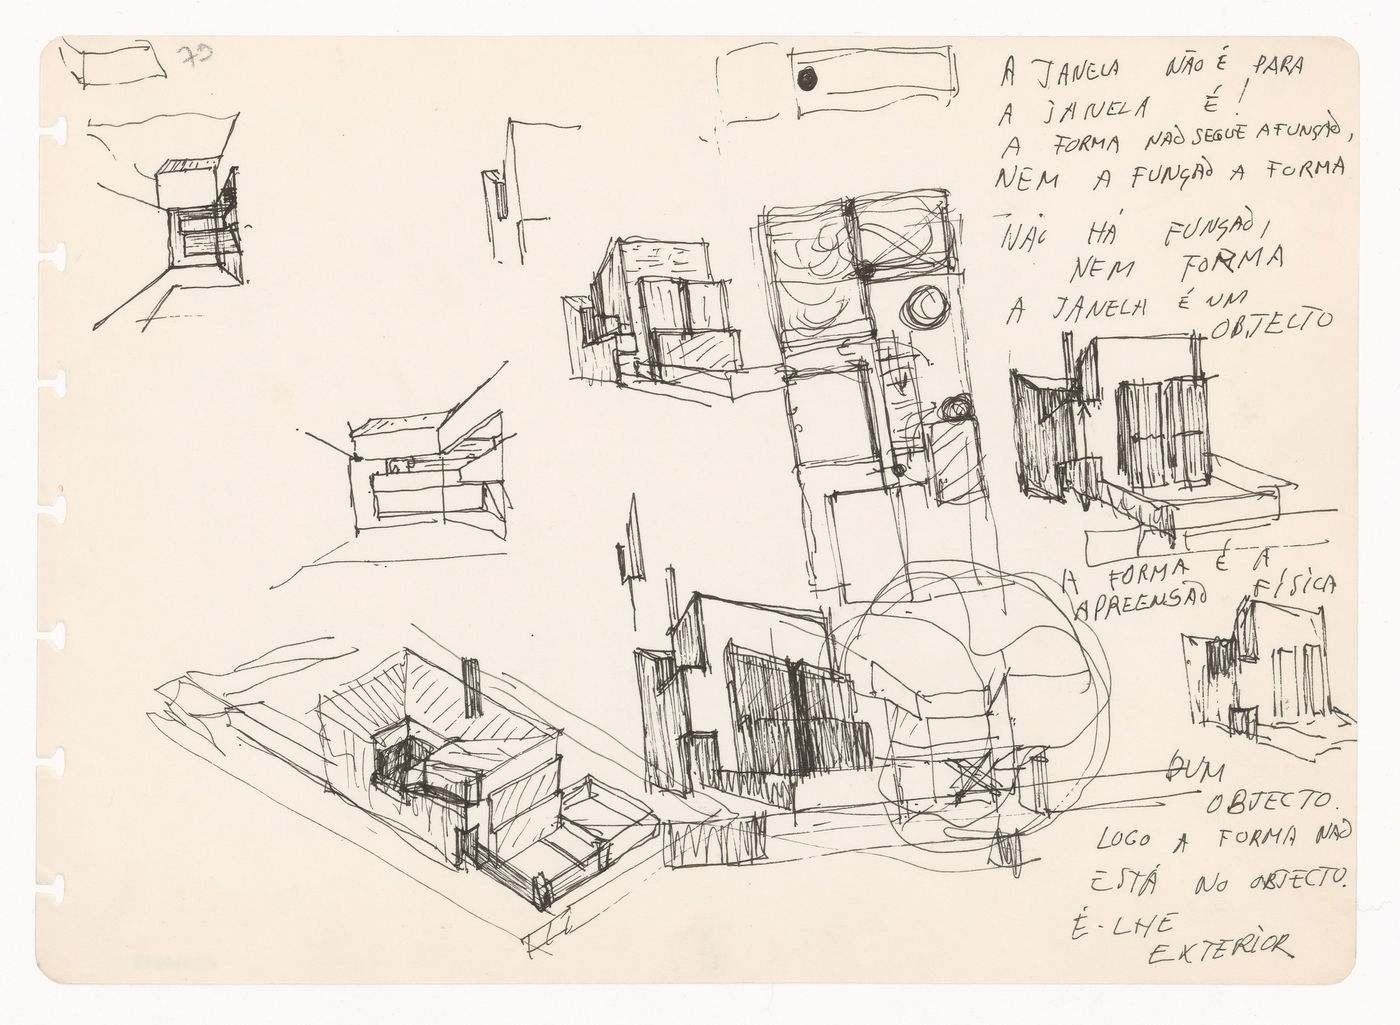 79
A JANELA NÃO É PARA
A JANELA É!
A FORMA NÃO SEGUE A FUNÇÃO,
NEM A FUNÇÃO A FORMA
NÃO HÁ FUNÇÃO,
NEM FORMA
A JANELA É UM
OBJECTO
A FORMA É A
APREENSÃO FÍSICA
DUM
OBJECTO.
LOGO A FORMA NÃO
ESTÁ NO OBJECTO.
É-LHE
EXTERIOR